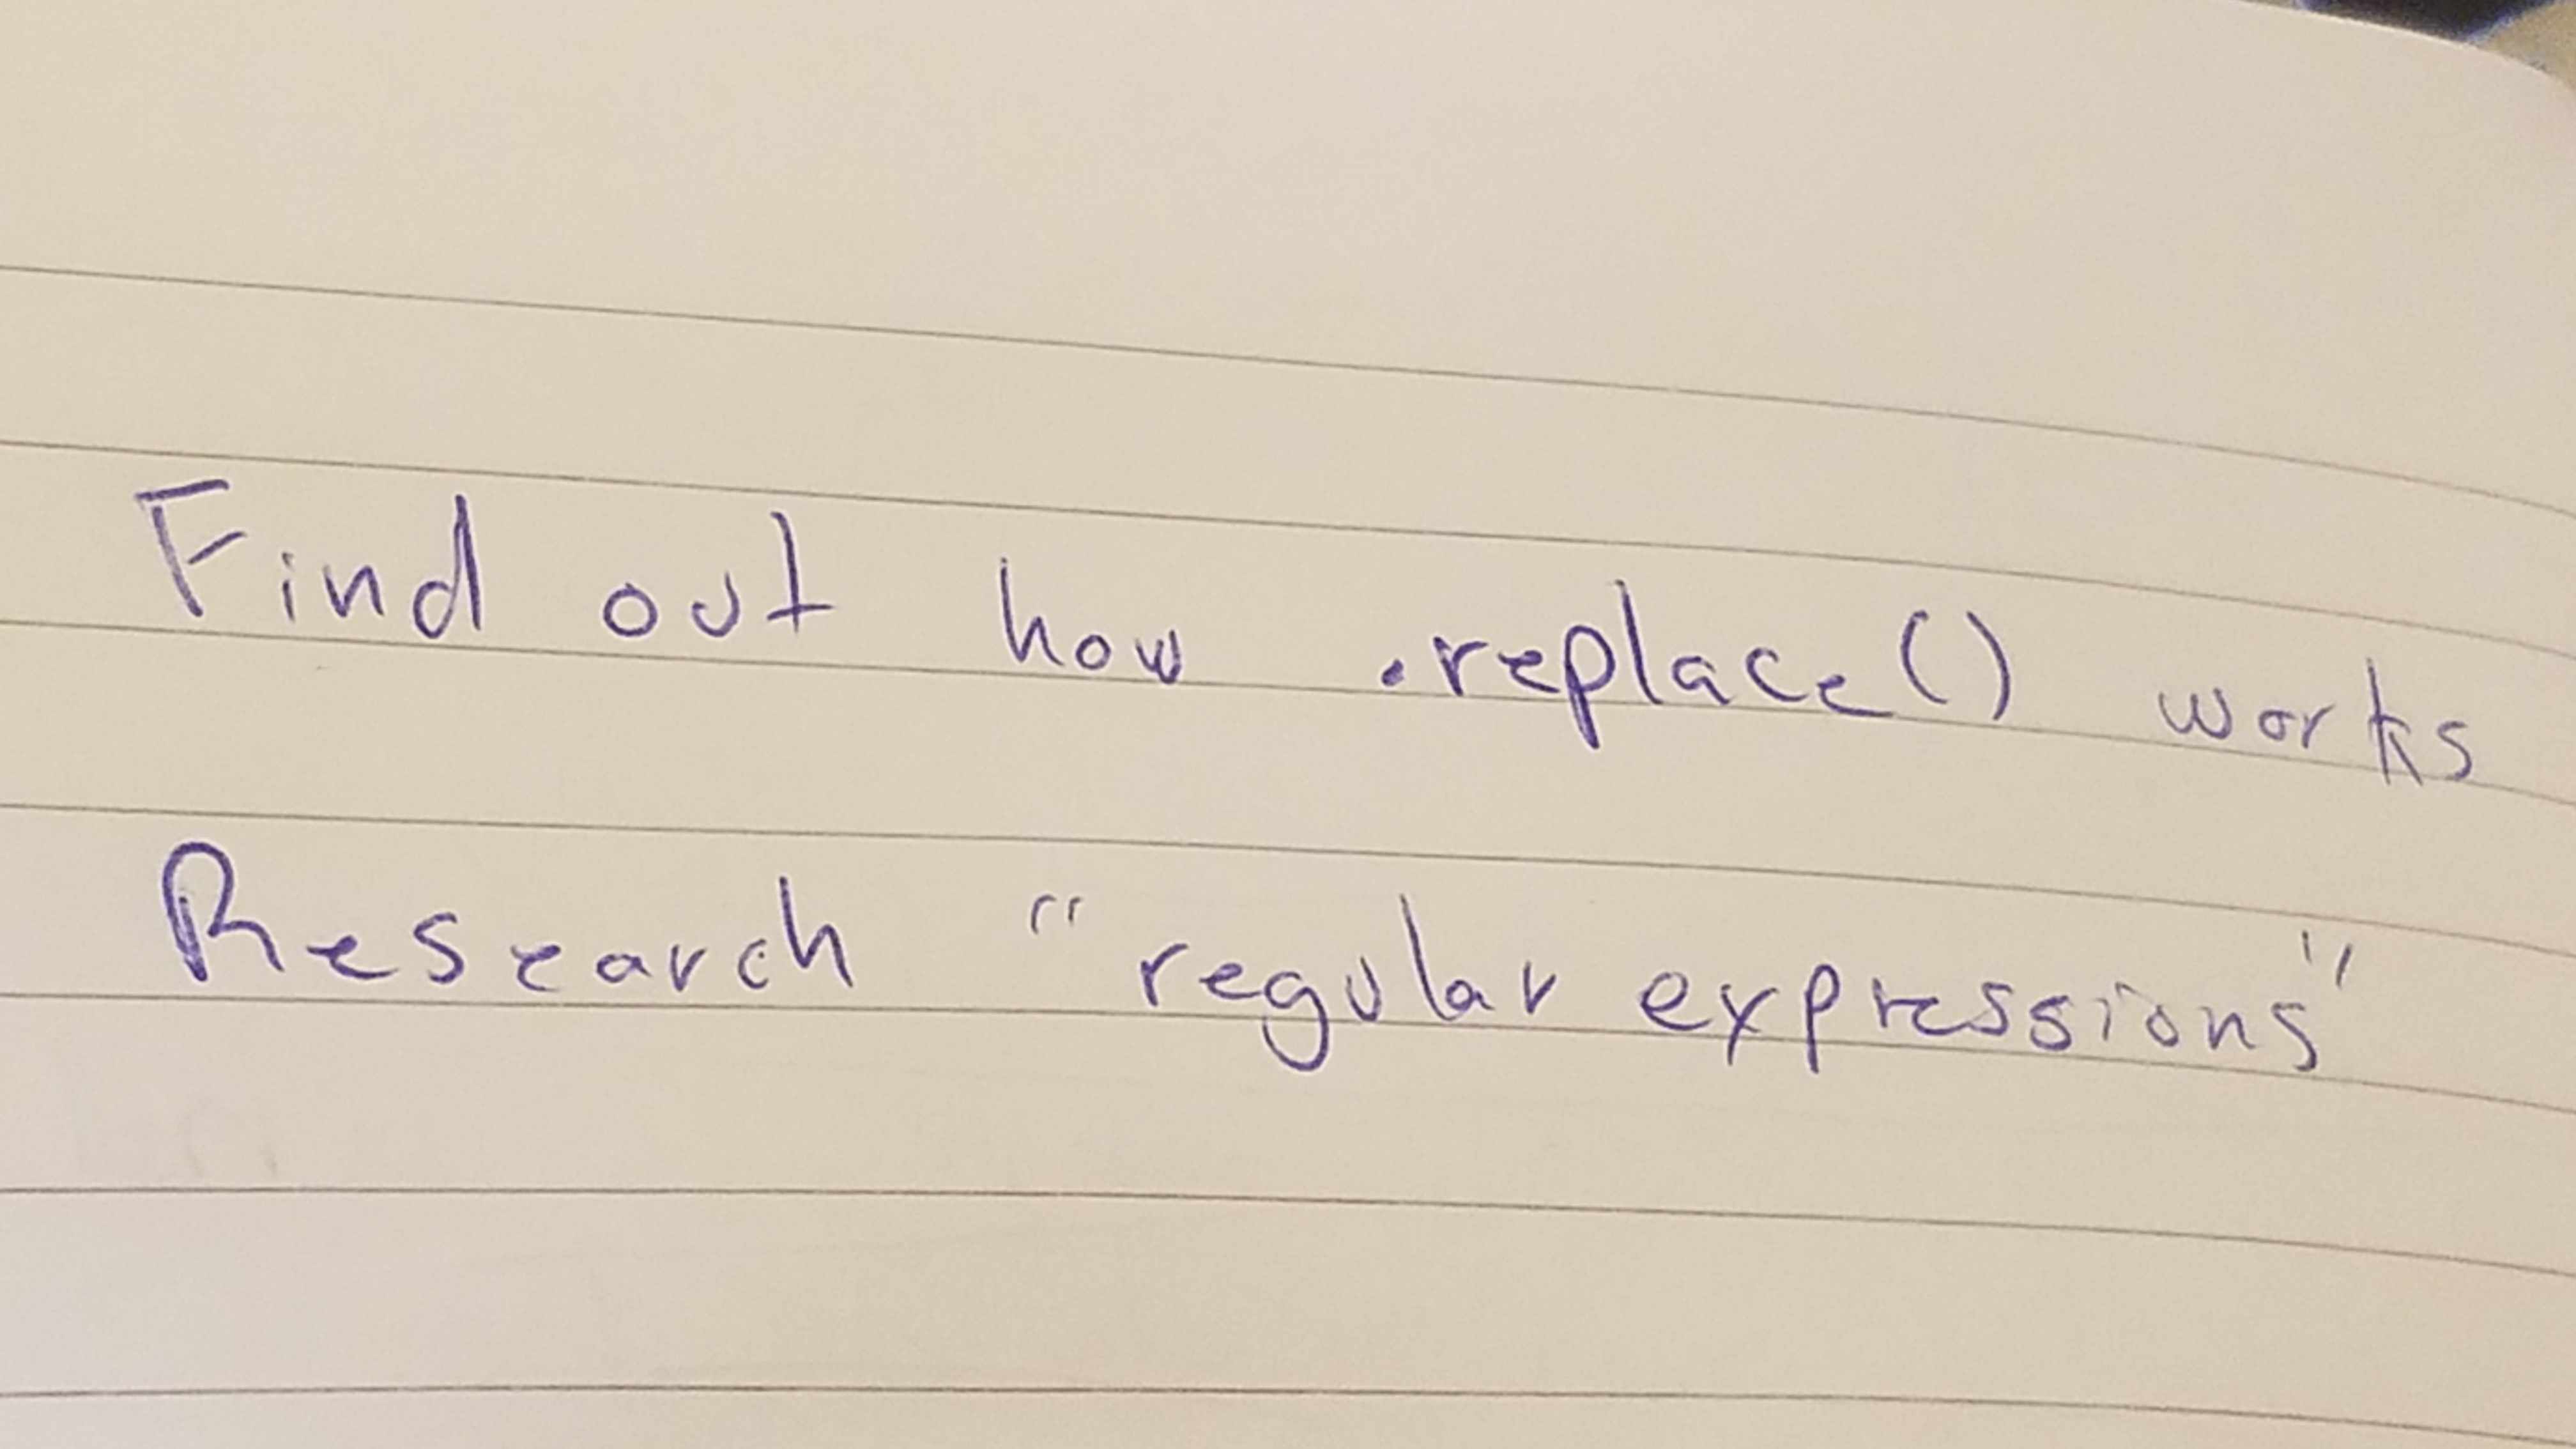 Find out how .replace() works
Research "regular expressions"